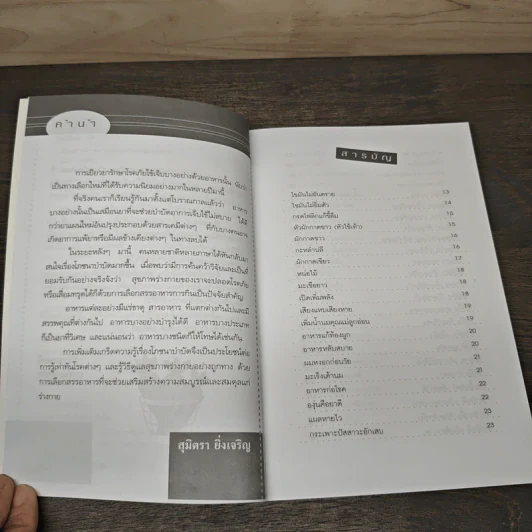 คำนำ
การเยียวยารักษาโรคภัยไข้เจ็บบางอย่างด้วยอาหารนั้น นับว่า
เป็นทางเลือกใหม่ที่ได้รับความนิยมอย่างมากในหลายปีมานี้
ที่จริงคนเราก็เรียนรู้กันมาตั้งแต่โบราณกาลแล้วว่า อาหาร
บางอย่างนั้นเป็นเสมือนยาที่จะช่วยบำบัดอาการเจ็บไข้ไม่สบาย
กว่ายาแผนใหม่อันปรุงประกอบด้วยสารเคมีต่างๆ ที่กับบางคนอาจ
เกิดอาการแพ้ยาหรือมีผลข้างเคียงต่างๆ ในทางลบได้
ในระยะหลังๆ มานี้ คนหลายชาติหลายภาษาได้หันกลับมา
สนใจเรื่องโภชนาบำบัดมากขึ้น เมื่อพบว่ามีการค้นคว้าวิจัยและเป็นที่
ยอมรับกันอย่างจริงจังว่า สุขภาพร่างกายของเราจะปลอดโรคภัย
หรือเสี่ยงทรุดได้ก็ด้วยการเลือกสรรอาหารการกินเป็นปัจจัยสำคัญ
อาหารแต่ละอย่างมีแร่ธาตุ สารอาหาร ที่แตกต่างกันไปและมี
สรรพคุณที่ต่างกันไป อาหารบางอย่างบำรุงได้ดี อาหารบางประเภท
ก็เป็นยาที่วิเศษ และแน่นอนว่า อาหารบางชนิดก็ให้โทษได้เช่นกัน
การเพิ่มเติมเกร็ดความรู้เรื่องโภชนาบำบัดจึงเป็นประโยชน์ต่อ
การรู้เท่าทันโรคต่างๆ และรู้วิธีดูแลสุขภาพร่างกายอย่างถูกทาง ด้วย
การเลือกสรรอาหารที่จะช่วยเสริมสร้างความสมบูรณ์และสมดุลแก่
ร่างกาย
สุมิตรา ยิ่งเจริญ
สารบัญ
ไขมันไม่อันตราย 13
ไขมันไม่อิ่มตัว 14
กรดโฟลิกแก้ขี้ลืม 15
หัวผักกาดขาว (หัวไช้เท้า) 15
ผักกาดขาว 16
กะหล่ำปลี 16
ผักกาดเขียว 17
หน่อไม้ 18
มะเขือยาว 18
เปิดเพิ่มพลัง 18
เสียงแหบเสียงหาย 19
เพิ่มน้ำนมคุณแม่ลูกอ่อน 19
อาหารแก้ท้องผูก 20
อาหารหลับสบาย 20
ผมหงอกก่อนวัย 21
มะเร็งเต้านม 21
อาหารก่อโรค 22
องุ่นคือยาดี 22
แผลหายไว 23
กระเพาะปัสสาวะอักเสบ 23